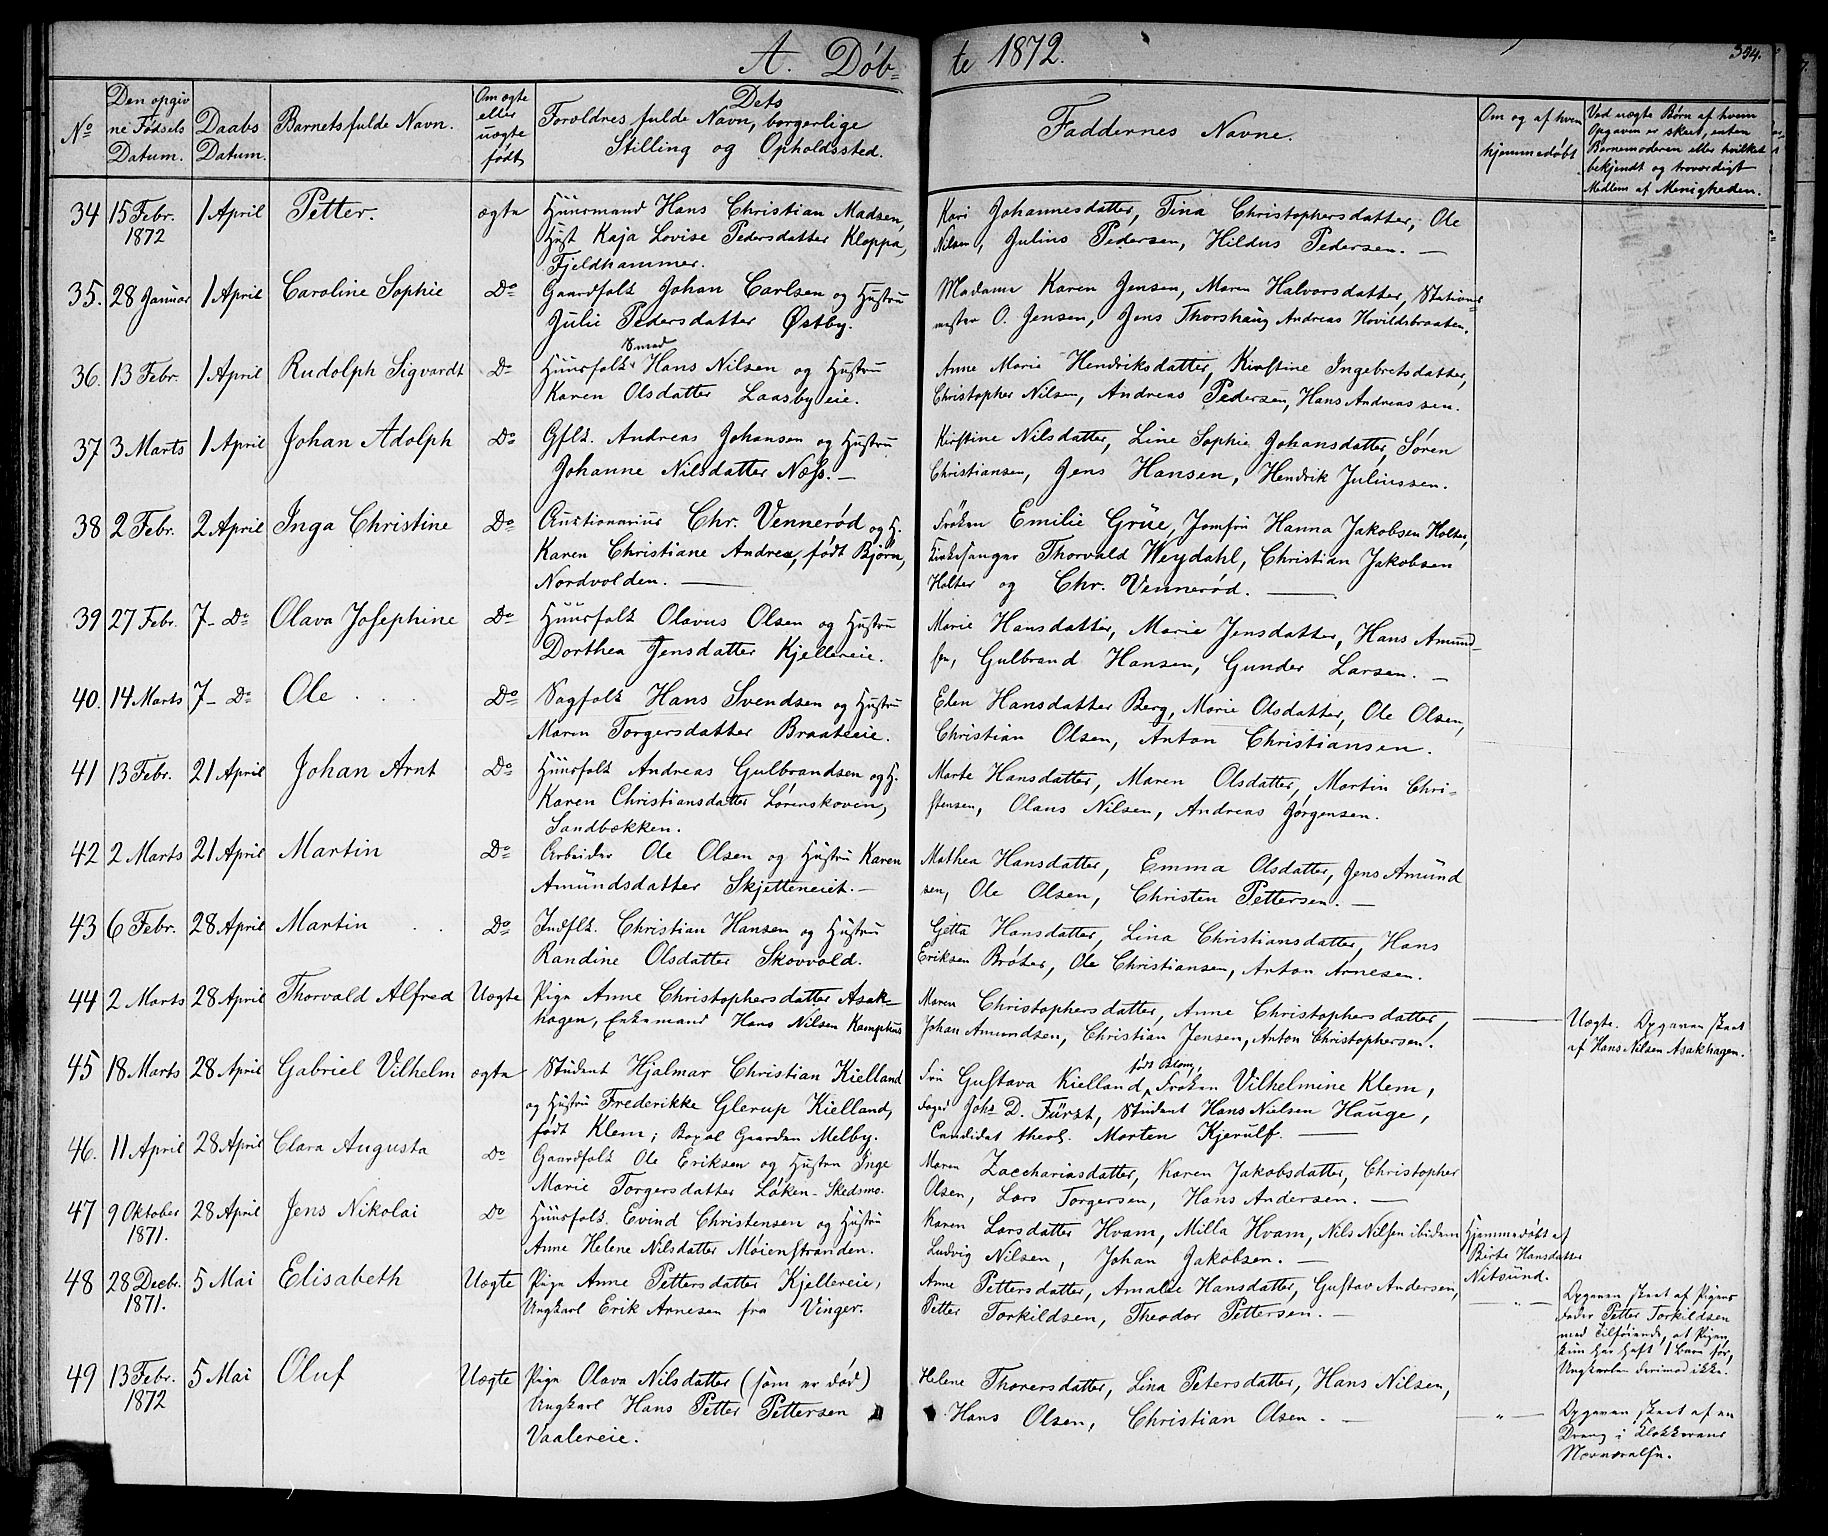 A. Døbte 1872.
334.
No
Den opgivne Fødsels Datum.
Daabs Datum.
Barnets fulde Navn.
Om ægte eller uægte født
Dets Forældres fulde Navn, borgerlige Stilling og Opholdssted.
Faddernes Navne.
Om og af hvem hjemmedøbt
Ved uægte Børn af hvem Opgaven er skeet, enten Barnemoderen eller hvilket bekjendt og troværdigt Medlem af Menigheden.
34 15 Febr. 1872 1 April Petter. ægte Huusmand Hans Christian Madsen,
Hust Kaja Lovise Pedersdatter Kloppa,
Fjeldhammer.
Kari Johannesdatter, Tina Christophersdatter, Ole
Nilsen, Julius Pedersen, Hildus Pedersen. —
35. 28 Januar 1 April Caroline Sophie Do Gaardfolk Johan Carlsen og Hustru
Julie Pedersdatter Østby.
Madame Karen Jensen, Maren Halvorsdatter, Stations
mester O. Jensen, Jens Thorshaug Andreas Hovildsbraaten.
36. 13 Febr. 1 April Rudolph Sigvardt Do Huusfolk Smed Hans Nilsen og Hustru
Karen Olsdatter Laasby eie.
Anne Marie Hendriksdatter, Kirstine Ingebretsdatter,
Christopher Nilsen, Andreas Pedersen, Hans Andreassen.
37 3 Marts 1 April Johan Adolph Do Gflk. Andreas Johansen og Hustru
Johanne Nilsdatter Næss. —
Kirstine Nilsdatter, Line Sophie Johansdatter, Søren
Christiansen, Jens Hansen, Hendrik Juliussen.
38 2 Febr. 2 April Inga Christine Do Auctionarius Chr. Vennerød og H.
Karen Christiane Andrea, født Bjørn,
Nordvolden. —
Frøken Emilie Grüe, Jomfru Hanna Jakobsen Holter,
Kirkesanger Thorvald Weydahl, Christian Jakobsen
Holter og Chr. Vennerød. —
39 27 Febr. 7 - Do Olava Josephine Do Huusfolk Olavus Olsen og Hustru
Dorthea Jensdatter Kjellereie.
Marie Hansdatter, Marie Jensdatter, Hans Amund-
sen, Gulbrand Hansen, Gunder Larsen. —
40. 14 Marts 7 - Do Ole Do Sagfolk Hans Svendsen og Hustru
Maren Torgersdatter Braateeie.
Elen Hansdatter Berg, Marie Olsdatter, Ole Olsen,
Christian Olsen, Anton Christiansen.
41 13 Febr. 21 April Johan Arnt Do Huusfolk Andreas Gulbrandsen og H.
Karen Christiansdatter Lørenskoven,
Sandbækken.
Marte Hansdatter, Maren Olsdatter, Martin Chri-
stensen, Olaus Nilsen, Andreas Jørgensen.
42 2 Marts 21 April Martin Do Arbeider Ole Olsen og Hustru Karen
Amundsdatter Skjetteneiet. —
Mathea Hansdatter, Emma Olsdatter, Jens Amund
sen, Ole Olsen, Christen Pettersen. —
43 6 Febr. 28 April Martin Do Indflk. Christian Hansen og Hustru
Randine Olsdatter Skovvold.
Gjetta Hansdatter, Lina Christiansdatter, Hans
Eriksen Bråter, Ole Christiansen, Anton Arnesen.
44 2 Marts 28 April Thorvald Alfred Uægte Pige Anne Christophersdatter Asak-
hagen, Enkemand Hans Nilsen Kamphus
Maren Christophersdatter, Anne Christophersdatter,
Johan Amundsen, Christian Jensen, Anton Christophersen.
Uægte. Opgaven skeet
af Hans Nilsen Asakhagen.
45 18 Marts 28 April Gabriel Vilhelm ægte Student Hjalmar Christian Kielland
og Hustru Frederikke Glerup Kielland,
født Klem; Bopæl Gaarden Melby.
Fru Gustava Kielland, født Blom, Frøken Vilhelmine Klem,
Foged Johs D. Fürst, Student Hans Nielsen Hauge,
Candidat theol. Morten Kjerulf. —
46. 11 April 28 April Clara Augusta Do Gaardfolk Ole Eriksen og Hustru Inge
Marie Torgersdatter Løken - Skedsmo.
Maren Zacchariasdatter, Karen Jakobsdatter, Christopher
Olsen, Lars Torgersen, Hans Andersen. —
47 9 Oktober 1871. 28 April Jens Nikolai Do Huusfolk. Evind Christensen og Hustru
Anne Helene Nilsdatter Møienstranden.
Karen Larsdatter Hvam, Milla Hvam, Nils Nilsen ibidem
Ludvig Nilsen, Johan Jakobsen. —
Hjemmedøbt af
Birte Hansdatter
Nitsund.
48 28 Decbr. 1871. 5 Mai Elisabeth Uægte Pige Anne Pettersdatter Kjellereie,
Ungkarl Erik Arnesen fra Vinger.
Anne Pettersdatter, Amalie Hansdatter, Gustav Andersen,
Petter Torkildsen, Theodor Pettersen. —
Opgaven skeet af Pigens
Fader Petter Torkildsen
med Tilføiende, at Pigen
kun har havt 1 Barn før,
Ungkarlen derimod ikke.
49 13 Febr. 1872 5 Mai Oluf Uægte Pige Olava Nilsdatter (som er død)
Ungkarl Hans Petter Pettersen
Vaalereie.
Helene Thorersdatter, Lina Petersdatter, Hans Nilsen,
Hans Olsen, Christian Olsen. —
Opgaven skeet af en
Dreng i Klokkerens
Nærværelse.